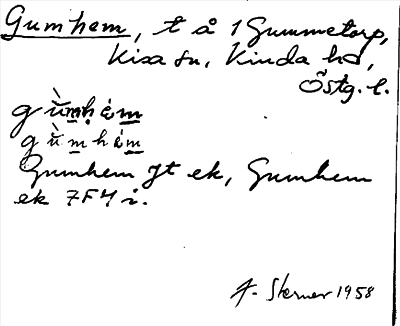 Gumhem, t å 1 Gummetorp,
Kisa sn, Kinda hd,
Östg. l.
gùmhém
gùmhém
Gumhem Jt ek, Gumhem
ek 7F4 i.
A. Sterner 1958